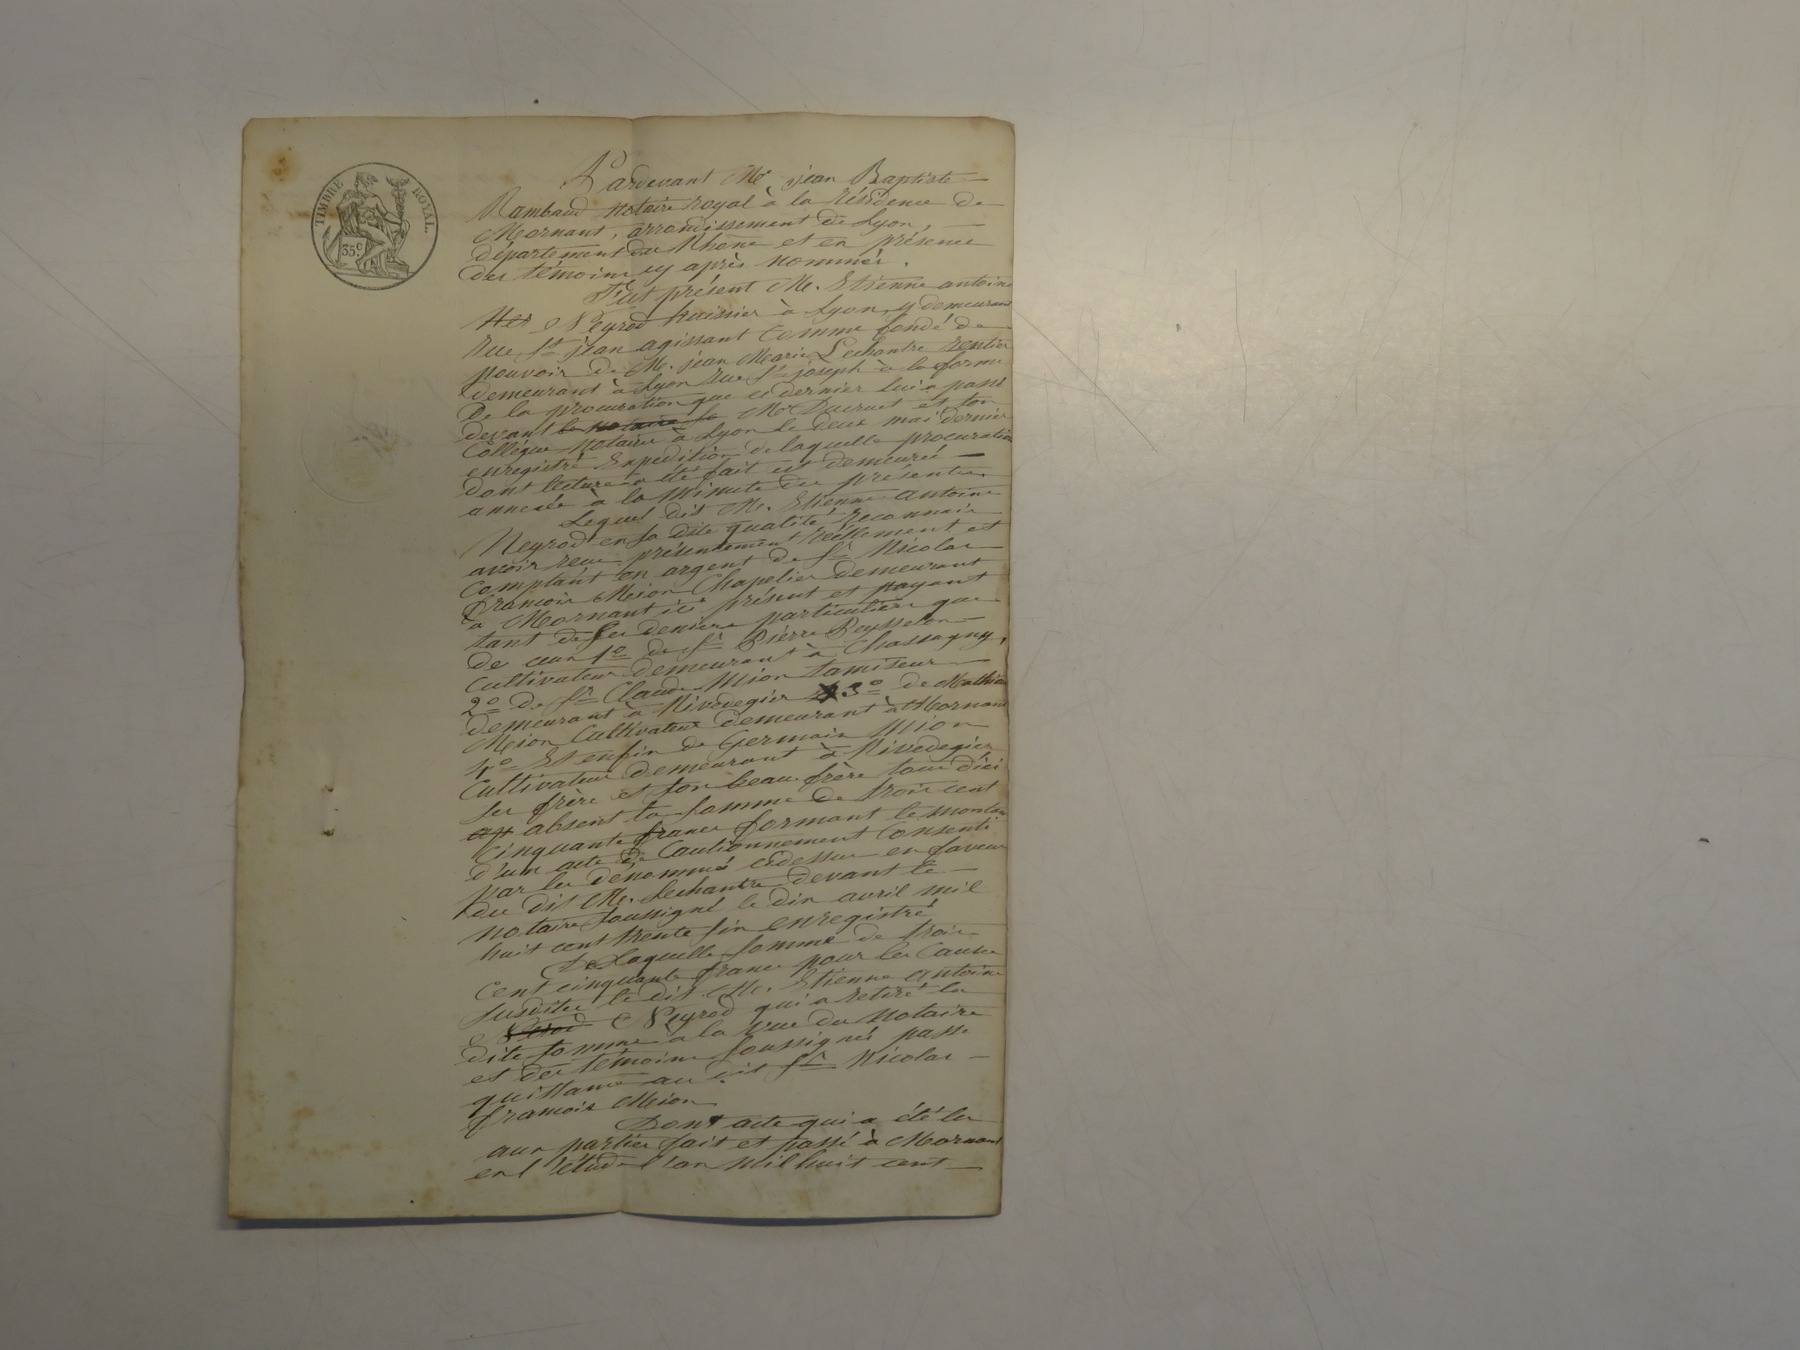 TIMBRE ROYAL.
35c.
Pardevant Me jean Baptiste
Rambaud notaire royal à la résidence de
Mornant, arrondissement de Lyon,
département du Rhône et en présence
des témoins cy après nommés.
Fut présent M. Etienne antoine
Neyrod huissier à Lyon, y demeurant
rue St jean agissant comme fondé de
pouvoir de M. jean Marie Lechantre rentier
demeurant à Lyon rue St joseph à la forme
De la procuration que ce dernier lui a passé
devant le notaire le Me Ducruet et son
Collègue notaire à Lyon le deux mai dernier
enregistré Expédition de laquelle procuration
dont lecture a été fait est demeurée
annexée à la Minute des présentes
Lequel dit M. Etienne antoine
Neyrod en sa dite qualité reconnait
avoir reçu présentement réellement et
Comptant en argent de Sr Nicolas
françois Mion Chapelier demeurant
à Mornant ici présent et payant
tant de ses deniers particuliers que
de ceux 1o de Sr Pierre Poysselon
cultivateur demeurant à Chassagny,
2o de Sr Claude Mion tamiseur
demeurant à Rivedegier 3o de Mathieu
Mion Cultivateur demeurant à Mornant
4o Et enfin de Germain Mion
Cultivateur demeurant à Rivedegier
ses frère et son beau frère tous d'ici
absent la somme de trois cent
Cinquante francs formant le montant
d'un acte de Cautionnement Consenti
par les dénommés cidessus en faveur
du dit M. Lechantre devant le
notaire soussigné le dix avril mil
huit cent trente six enregistré
De Laquelle somme de trois
cent cinquante francs pour les causes
susdites le dit M. Etienne antoine
Neyrod qui a retiré la
dite somme à la vue du notaire
et des témoins soussignés passe
quittance au dit Sr Nicolas
françois Mion
Dont acte qui a été lu
aux parties fait et passé à Mornant
en l'étude l'an Mil huit cent